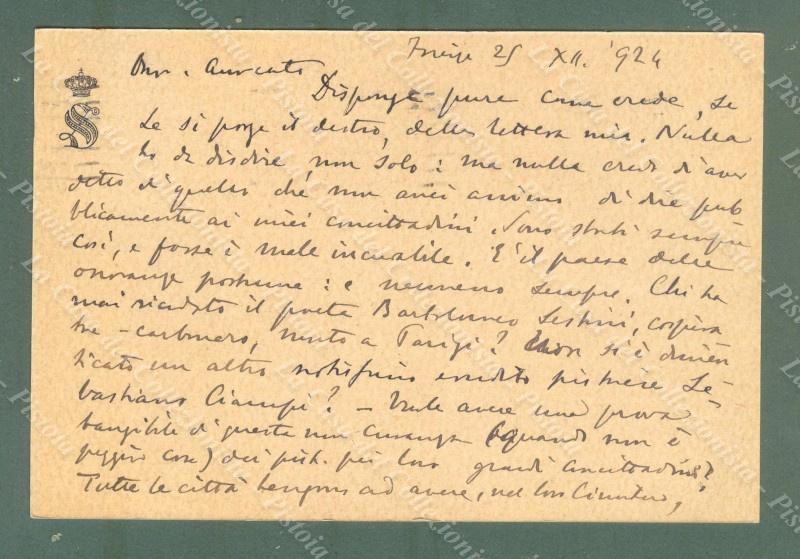 Firenze 25 XII. '924
Onor. Avvocato
Disponga pure come crede, se
le si porge il destro, della lettera mia. Nulla
ho da disdire non solo: ma nulla credo di aver
detto di quello che non avrei animo di dire pub
blicamente ai miei concittadini. Sono stati sempre
così, e forse è male incurabile. È il paese delle
onoranze postume: e nemmeno sempre. Chi ha
mai ricordato il poeta Bartolomeo Sestini, cospira
tre-carbonaro, morto a Parigi? Non si è dimen
ticato un altro notissimo erudito pistoiese Se-
bastiano Ciampi? – Vuole avere una prova
tangibile di questa non curanza (quando non è
peggio cosa) dei pist. pei loro grandi concittadini?
Tutte le città tengono ad avere, nel loro Cimitero,
La Pistoia del Collezionista - Pistoia